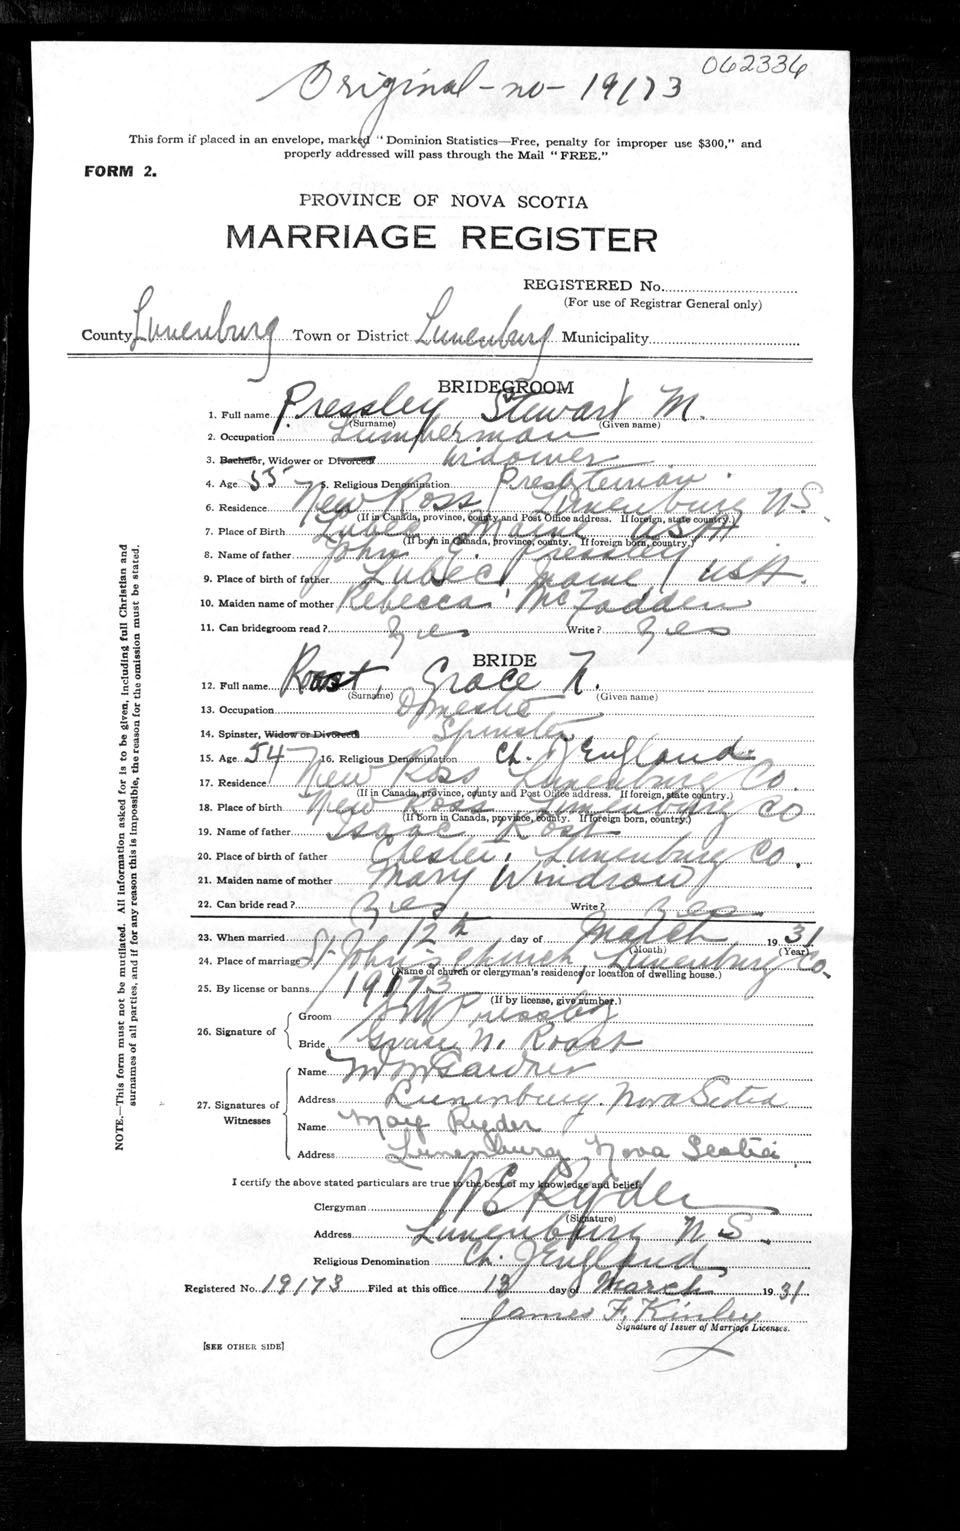 062336
Original - no - 19173
This form if placed in an envelope, marked "Dominion Statistics—Free, penalty for improper use $300," and
properly addressed will pass through the Mail "FREE."
FORM 2.
PROVINCE OF NOVA SCOTIA
MARRIAGE REGISTER
REGISTERED No.
(For use of Registrar General only)
County Lunenburg Town or District Lunenburg Municipality
BRIDEGROOM
1. Full name Pressley Stewart M.
(Surname) (Given name)
2. Occupation Lumberman
3. Bachelor, Widower or Divorced Widower
4. Age 55 5. Religious Denomination Presbyterian
6. Residence New Ross Lunenburg N.S.
(If in Canada, province, county and Post Office address. If foreign, state country.)
7. Place of Birth Lubec Maine USA
(If born in Canada, province, county. If foreign born, country.)
8. Name of father John Pressley
9. Place of birth of father Lubec Maine USA.
10. Maiden name of mother Rebecca McFadden
11. Can bridegroom read? Yes Write? Yes
BRIDE
12. Full name Roast, Grace N.
(Surname) (Given name)
13. Occupation Domestic
14. Spinster, Widow or Divorced Spinster
15. Age 54 16. Religious Denomination Ch. of England
17. Residence New Ross Lunenburg Co.
(If in Canada, province, county and Post Office address. If foreign, state country.)
18. Place of birth New Ross Lunenburg Co
(If born in Canada, province, county. If foreign born, country.)
19. Name of father Isaac Rost
20. Place of birth of father Chester, Lunenburg Co.
21. Maiden name of mother Mary Windrow
22. Can bride read? Yes Write? Yes
23. When married 12th day of March 1931
(Month) (Year)
24. Place of marriage St John's Church Lunenburg Co.
(Name of church or clergyman's residence, or location of dwelling house.)
25. By license or banns 19173
(If by license, give number.)
26. Signature of
Groom S M Pressley
Bride Grace N. Roast
27. Signatures of Witnesses
Name W M Gardner
Address Lunenburg. Nova Scotia
Name May Ryder
Address Lunenburg Nova Scotia
I certify the above stated particulars are true to the best of my knowledge and belief.
Clergyman W E Ryder
(Signature)
Address Lunenburg N S.
Religious Denomination Ch. of England
Registered No. 19173 Filed at this office 13 day of March 1931
James F. Kinley
Signature of Issuer of Marriage Licenses.
[SEE OTHER SIDE]
NOTE.—This form must not be mutilated. All information asked for is to be given, including full Christian and
surnames of all parties, and if for any reason this is impossible, the reason for the omission must be stated.